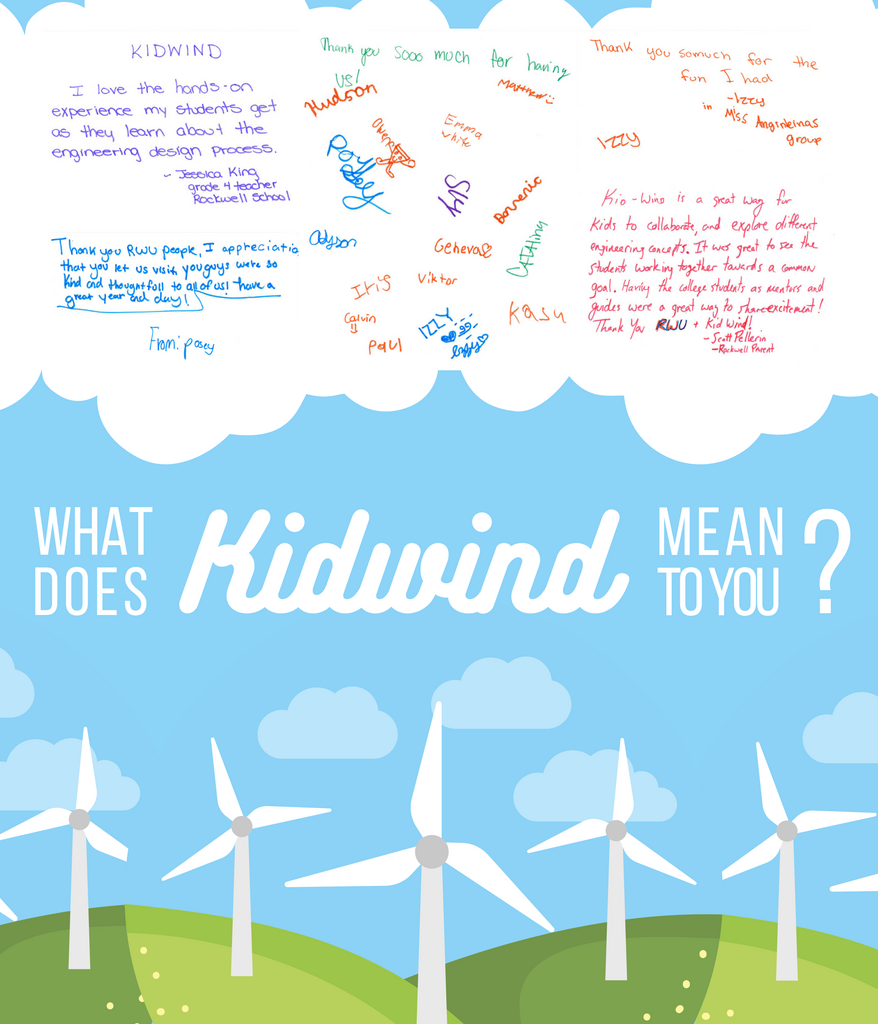 KIDWIND
I love the hands-on
experience my students get
as they learn about the
engineering design process.
- Jessica King
grade 4 teacher
Rockwell School
Thank you RWU people, I appreciatia
that you let us visit, you guys were so
kind and thoughtfull to all of us! have a
great year and day!
From: posey
Thank you sooo much for having
us!
Hudson
Matthew
Owen
Emma
White
Sky
Domenic
Adyson
Geneva
Iris
Viktor
Calvin
Paul
IZZY
Kasy
Thank you somuch for the
fun I had
-Izzy
in Miss Angieleinas
group
IZZY
Kid-Wind is a great way for
kids to collaborate, and explore different
engineering concepts. It was great to see the
students working together towards a common
goal. Having the college students as mentors and
guides were a great way to share excitement!
Thank you RWU + Kid Wind!
- Scott Pellerin
- Rockwell Parent
WHAT DOES Kidwind MEAN TO YOU?